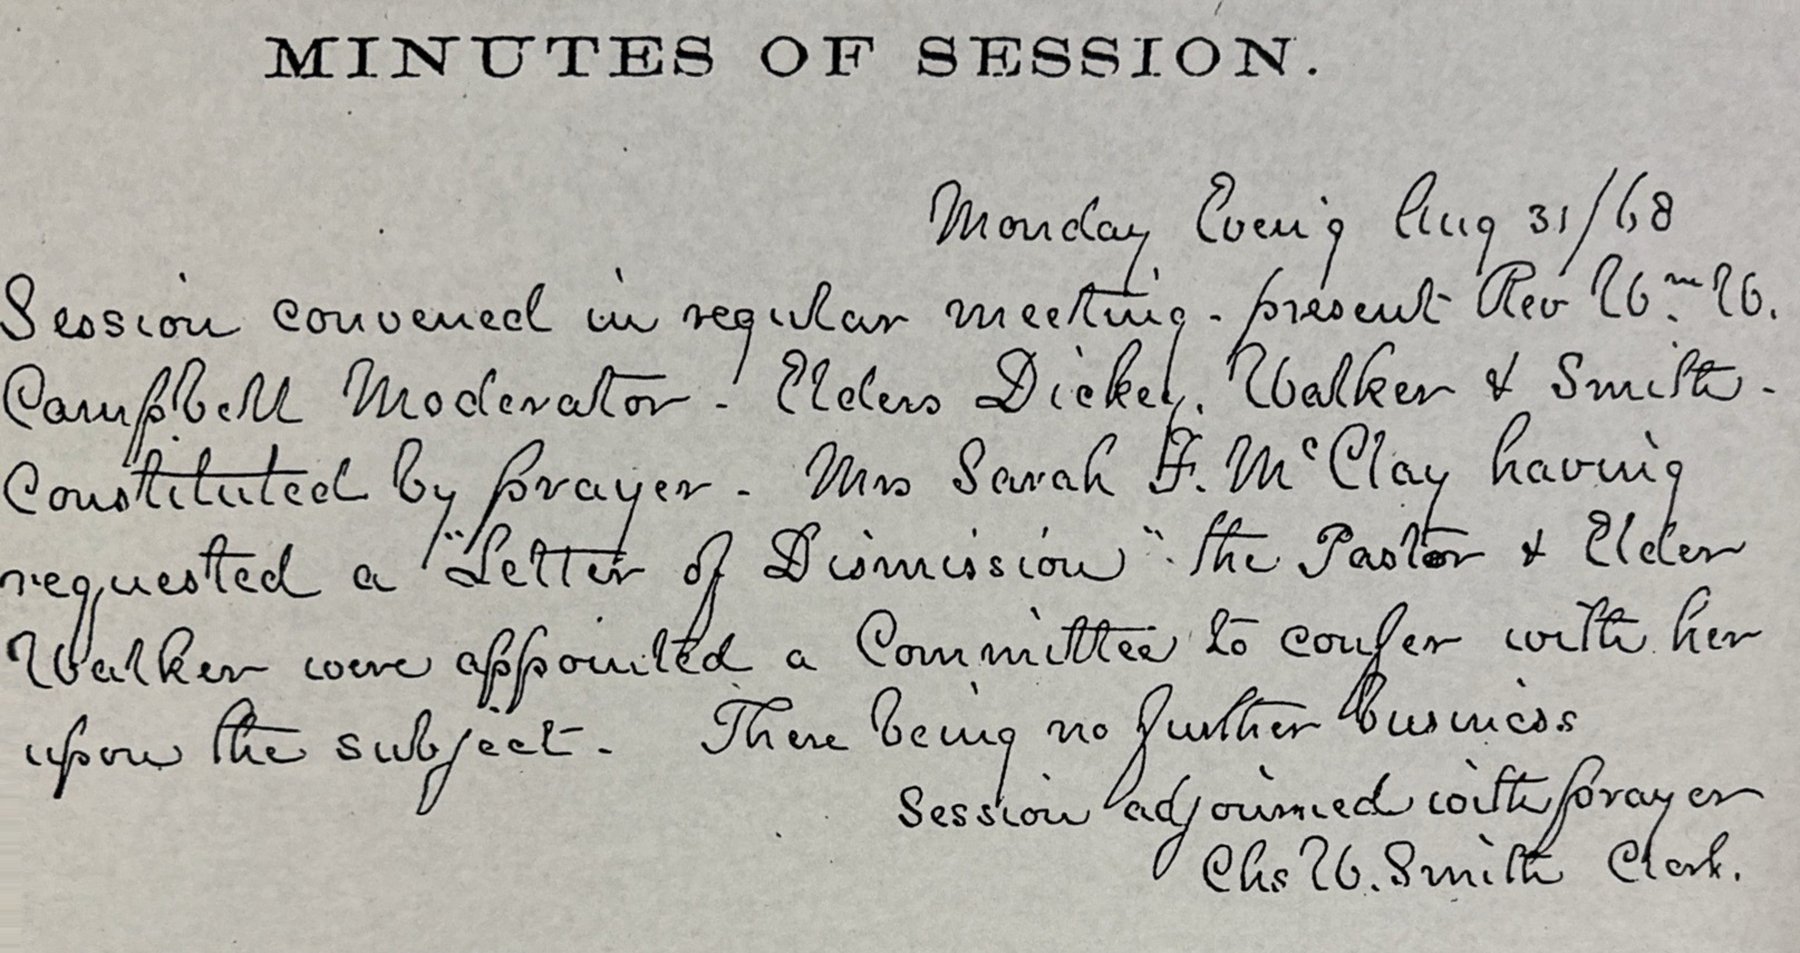 MINUTES OF SESSION.
Monday Even'g Aug 31/68
Session convened in regular meeting - present Rev Wm. W.
Campbell Moderator - Elders Dickey, Walker & Smith -
Constituted by prayer - Mrs Sarah F. McClay having
requested a "Letter of Dismission" the Pastor & Elder
Walker were appointed a Committee to confer with her
upon the subject - There being no further business
Session adjourned with prayer
Chs W. Smith Clerk.